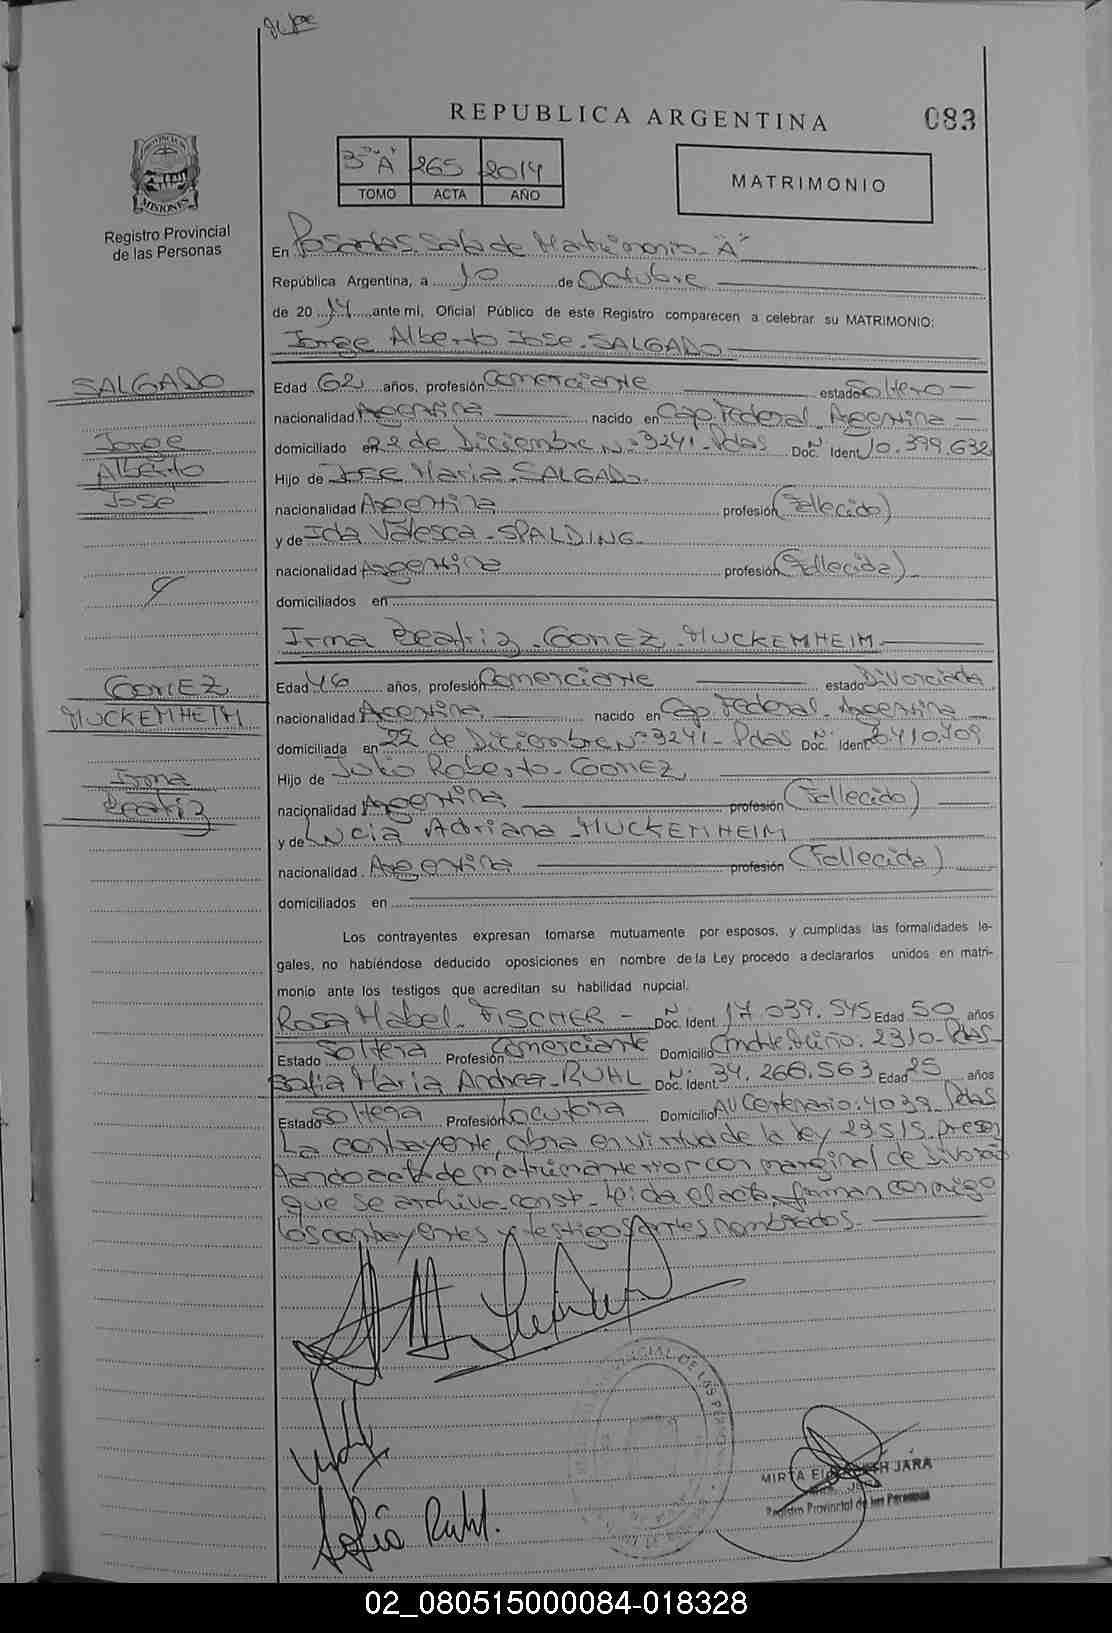 REPUBLICA ARGENTINA
083
3º "A" 265 2014
TOMO ACTA AÑO
MATRIMONIO
PROVINCIA DE
MISIONES
Registro Provincial
de las Personas
En Posadas. Sala de Matrimonio - "A"
República Argentina, a 10 de Octubre
de 2014 ante mi, Oficial Público de este Registro comparecen a celebrar su MATRIMONIO:
Jorge Alberto Jose - SALGADO
SALGADO
Jorge
Alberto
José
Edad 62 años, profesión Comerciante estado Soltero
nacionalidad Argentina nacido en Cap. Federal Argentina
domiciliado en 22 de Diciembre Nº 3241 - Pdas Doc. Ident Nº 10.399.632
Hijo de Jose Maria - SALGADO
nacionalidad Argentina profesión (Fallecido)
y de Ida Valesca - SPALDING
nacionalidad Argentina profesión (Fallecida)
domiciliados en
Irma Beatriz - GOMEZ MUCKEMHEIM
GOMEZ
MUCKEMHEIM
Irma
Beatriz
Edad 46 años, profesión Comerciante estado Divorciada
nacionalidad Argentina nacido en Cap. Federal - Argentina
domiciliada en 22 de Diciembre Nº 3241 - Pdas Doc. Ident Nº
Hijo de Julio Roberto - GOMEZ
nacionalidad Argentina profesión (Fallecido)
y de Lucia Adriana - MUCKEMHEIM
nacionalidad Argentina profesión (Fallecida)
domiciliados en
Los contrayentes expresan tomarse mutuamente por esposos, y cumplidas las formalidades le-
gales, no habiéndose deducido oposiciones en nombre de la Ley procedo a declararlos unidos en matri-
monio ante los testigos que acreditan su habilidad nupcial.
Rosa Mabel - FISCHER - Doc. Ident Nº 17.039.545 Edad 50 años
Estado Soltera Profesión Comerciante Domicilio 2310 - Pdas
Sofia Maria Andrea - RUHL Doc. Ident Nº 34.266.563 Edad 25 años
Estado Soltera Profesión Locutora Domicilio AV Centenario: 4039 Pdas
La contrayente, obra en virtud de la ley 23515. presen
tando acta de matrim anterior con marginal de divorcio
que se archiva - const - Leida el acta, firman conmigo
los contrayentes y testigos antes nombrados.
Sofía Ruhl.
MIRTA JARA
Registro Provincial de las Personas
02_080515000084-018328